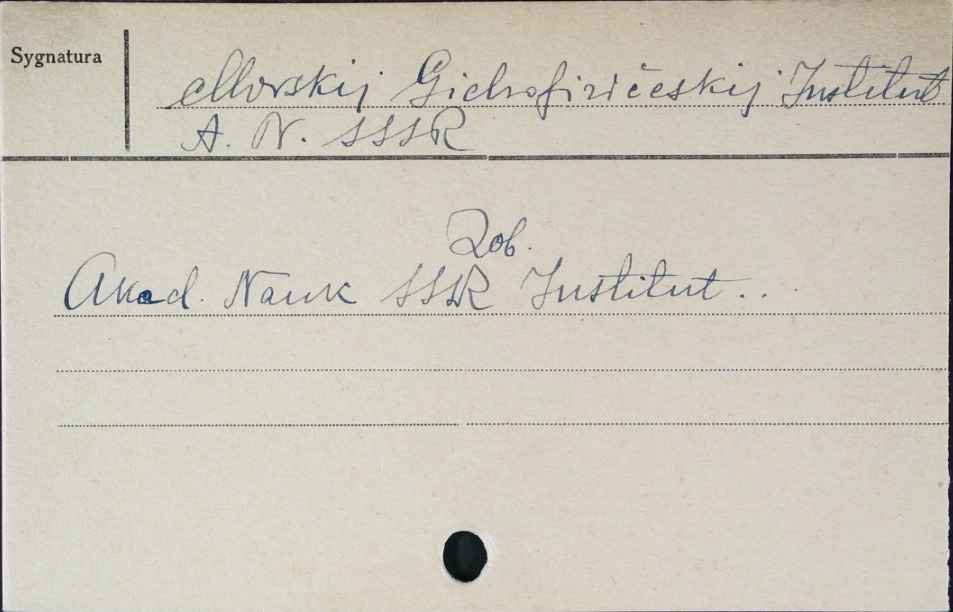 Sygnatura
Morskij Gidrofizičeskij Institut
A. N. SSSR
Zob.
Akad. Nauk SSSR Institut..